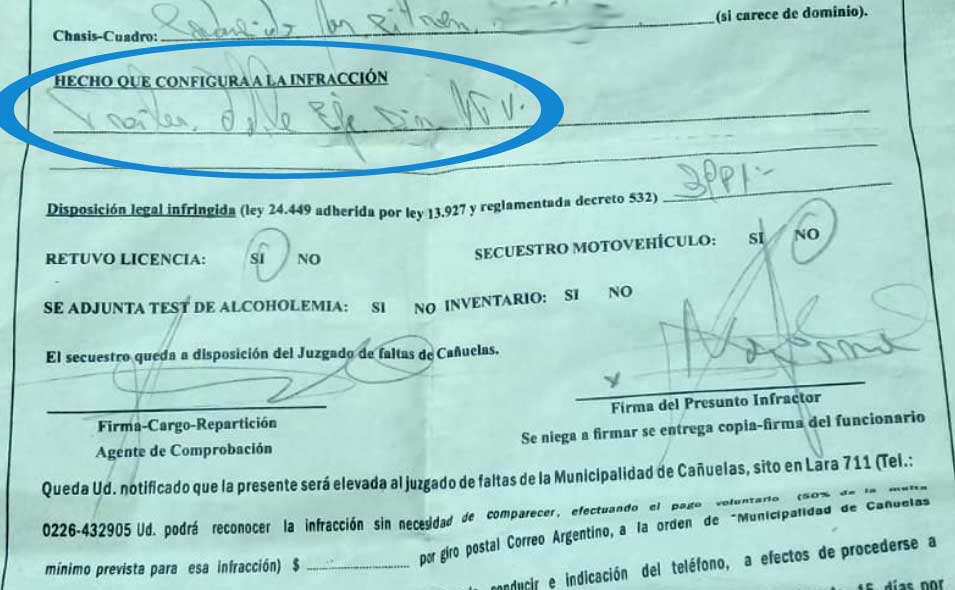 Chasis-Cuadro: (si carece de dominio).
HECHO QUE CONFIGURA A LA INFRACCIÓN
Trailer doble Eje sin VTV.
Disposición legal infringida (ley 24.449 adherida por ley 13.927 y reglamentada decreto 532)
RETUVO LICENCIA: SI NO SECUESTRO MOTOVEHÍCULO: SI NO
SE ADJUNTA TEST DE ALCOHOLEMIA: SI NO INVENTARIO: SI NO
El secuestro queda a disposición del Juzgado de faltas de Cañuelas.
Firma-Cargo-Repartición
Agente de Comprobación
x
Firma del Presunto Infractor
Se niega a firmar se entrega copia-firma del funcionario
Queda Ud. notificado que la presente será elevada al juzgado de faltas de la Municipalidad de Cañuelas, sito en Lara 711 (Tel.:
0226-432905 Ud. podrá reconocer la infracción sin necesidad de comparecer, efectuando el pago voluntario (50% de la multa
mínimo prevista para esa infracción) $ por giro postal Correo Argentino, a la orden de "Municipalidad de Cañuelas
conducir e indicación del teléfono, a efectos de procederse a
15 días por